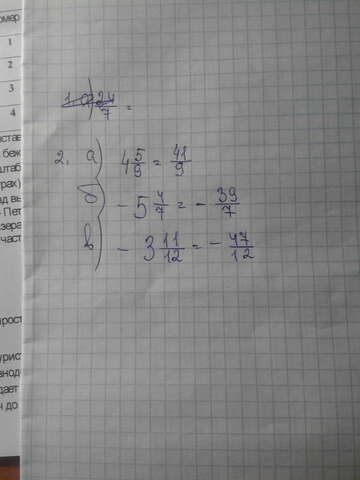 омер
1
2
3
4
беж
штаб
трах)
ад вы
Пет
зера
част
рост
урис
внод
дает
н до
1 а) 24/7 =
2. а) 4 5/9 = 41/9
б) - 5 4/7 = - 39/7
в) - 3 11/12 = - 47/12